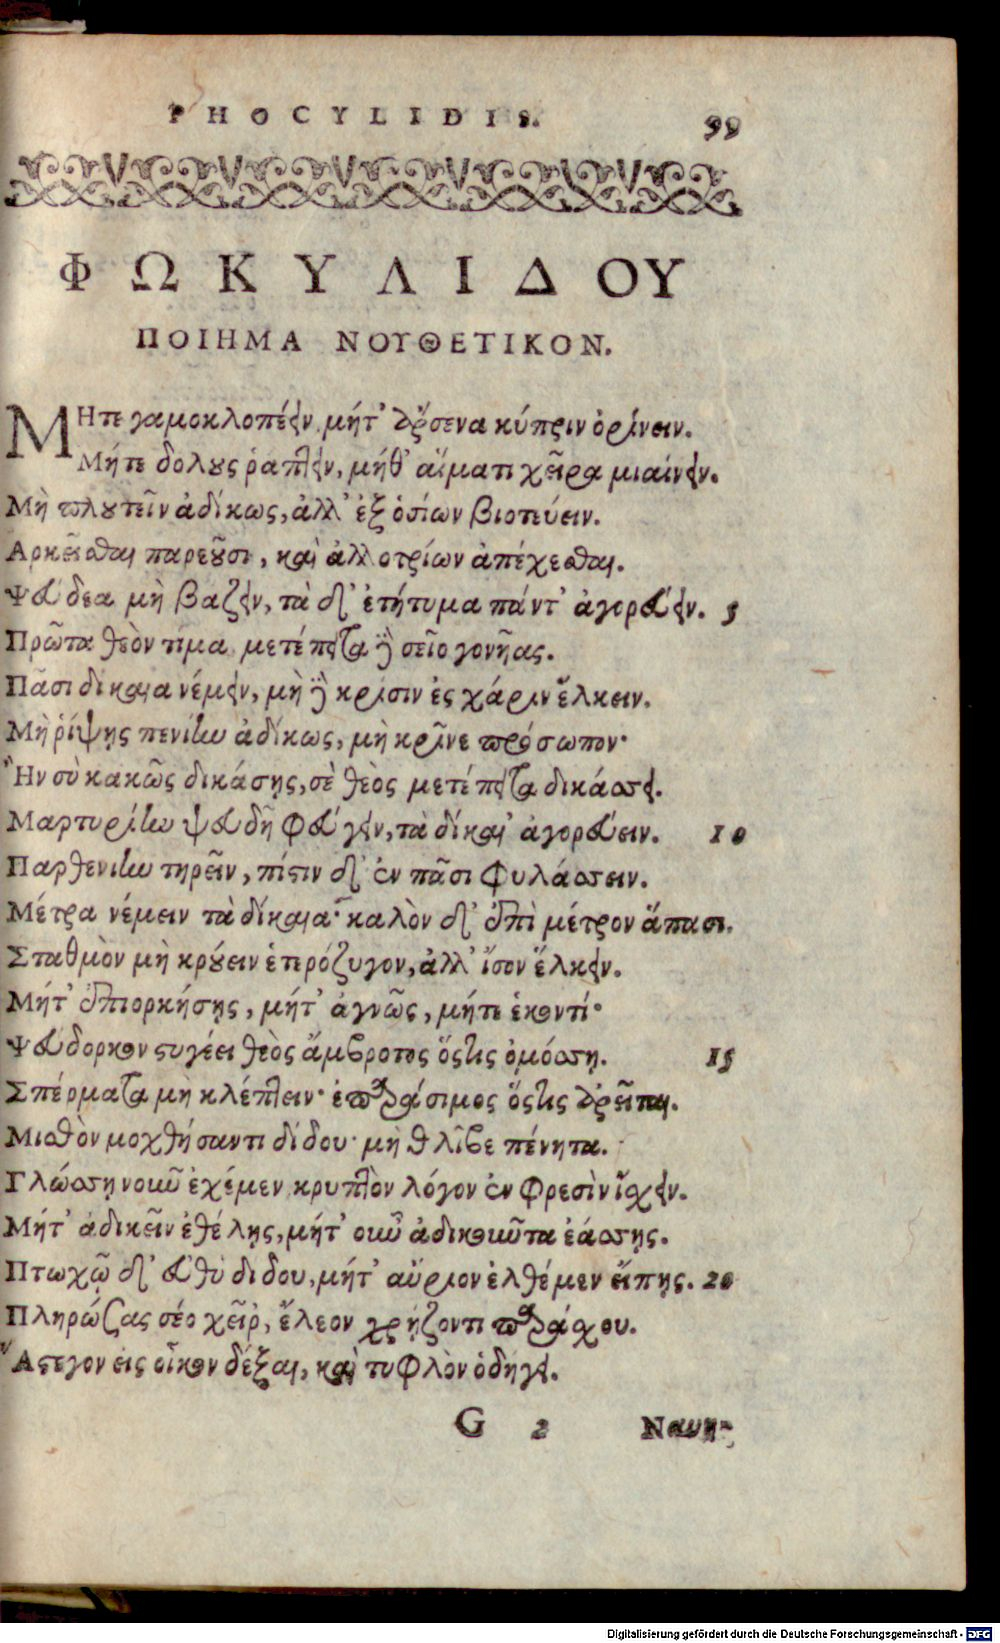 PHOCYLIDIS. 99
ΦΩΚΥΛΙΔΟΥ
ΠΟΙΗΜΑ ΝΟΥΘΕΤΙΚΟΝ.
ΜΗτε γαμοκλοπέειν, μήτ' ἄρσενα κύπριν ὀρίνειν.
Μήτε δόλους ῥάπτειν, μήθ' αἵματι χεῖρα μιαίνειν.
Μὴ πλουτεῖν ἀδίκως, ἀλλ' ἐξ ὁσίων βιοτεύειν.
Αρκεῖσθαι παρεοῦσι, καὶ ἀλλοτρίων ἀπέχεσθαι.
Ψεύδεα μὴ βάζειν, τὰ δ' ἐτήτυμα πάντ' ἀγορεύειν. 5
Πρῶτα θεὸν τίμα, μετέπειτα δὲ σεῖο γονῆας.
Πᾶσι δίκαια νέμειν, μὴ δὲ κρίσιν ἐς χάριν ἕλκειν.
Μὴ ῥίψῃς πενίην ἀδίκως, μὴ κρῖνε πρόσωπον·
Ἢν σὺ κακῶς δικάσῃς, σὲ θεὸς μετέπειτα δικάσσει.
Μαρτυρίην ψευδῆ φεύγειν, τὰ δίκαι' ἀγορεύειν. 10
Παρθενίην τηρεῖν, πίστιν δ' ἐν πᾶσι φυλάσσειν.
Μέτρα νέμειν τὰ δίκαια· καλὸν δ' ἐπὶ μέτρον ἅπασι.
Σταθμὸν μὴ κρούειν ἑτερόζυγον, ἀλλ' ἴσον ἕλκειν.
Μήτ' ἐπιορκήσῃς, μήτ' ἀγνῶς, μήτε ἑκοντί·
Ψεύδορκον στυγέει θεὸς ἄμβροτος ὅστις ὀμόσσῃ. 15
Σπέρματα μὴ κλέπτειν· ἐπαράσιμος ὅστις ἀρεῖται.
Μισθὸν μοχθήσαντι δίδου· μὴ θλῖβε πένητα.
Γλώσσῃ νοῦν ἐχέμεν, κρυπτὸν λόγον ἐν φρεσὶν ἴσχειν.
Μήτ' ἀδικεῖν ἐθέλῃς, μήτ' οὖν ἀδικοῦντα ἐάσσῃς.
Πτωχῷ δ' εὐθὺ δίδου, μήτ' αὔριον ἐλθέμεν εἴπῃς. 20
Πληρώσας σέο χεῖρ', ἔλεον χρῄζοντι παράσχου.
Ἄστεγον εἰς οἶκον δέξαι, καὶ τυφλὸν ὁδήγει.
G 2 Ναυη-